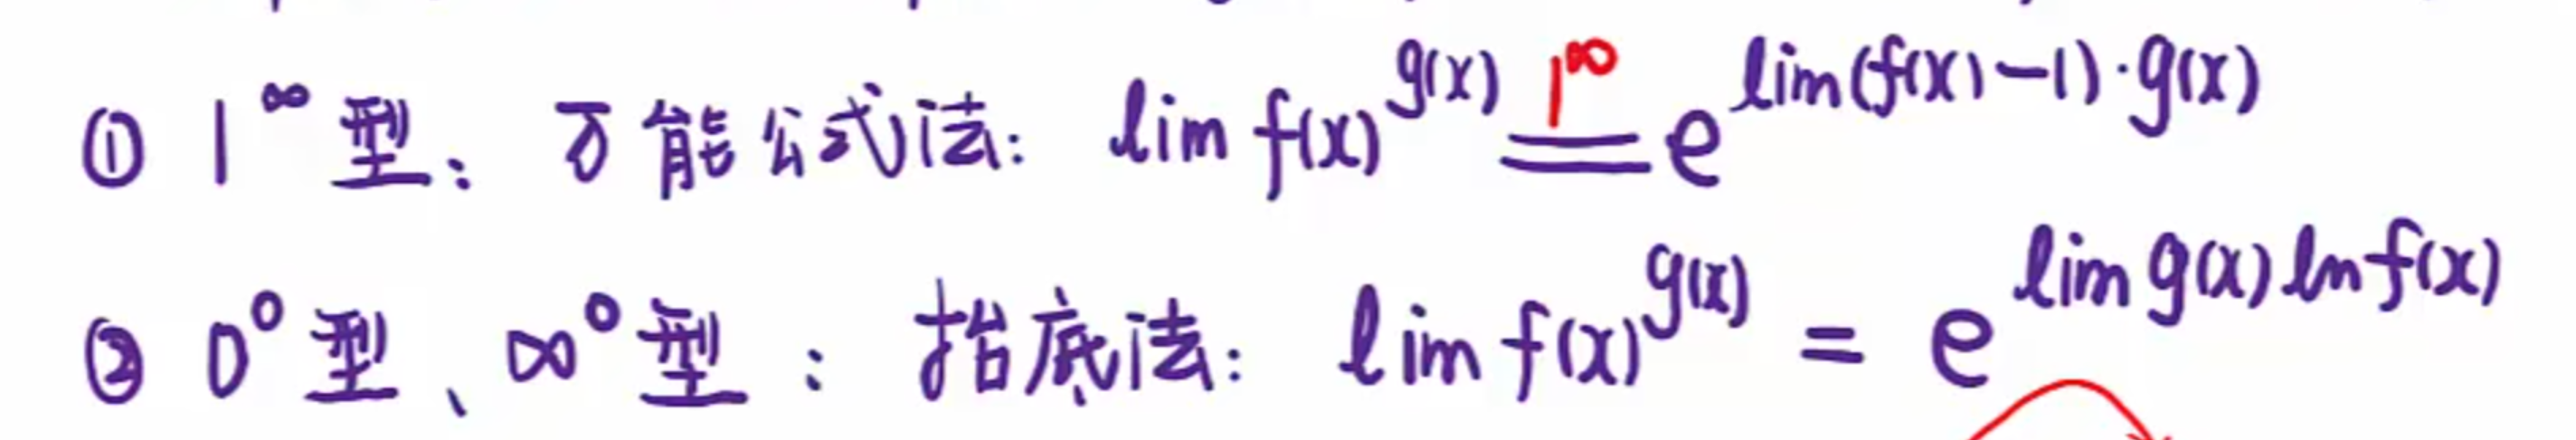 ① 1^∞ 型：万能公式法：lim f(x)^{g(x)} \overset{1^∞}{=} e^{lim(f(x)-1)·g(x)}
② 0^0 型、∞^0 型：抬底法：lim f(x)^{g(x)} = e^{lim g(x) ln f(x)}